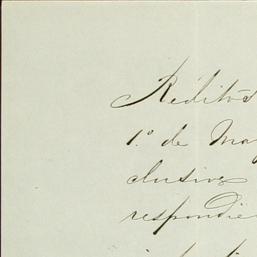 Réditos
1.º de May
clusive
respondie